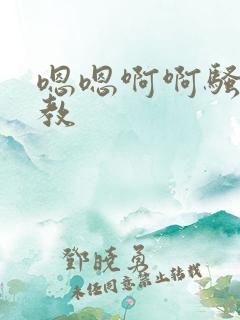 嗯嗯啊啊骚
教
邓晓勇
未经同意禁止转载